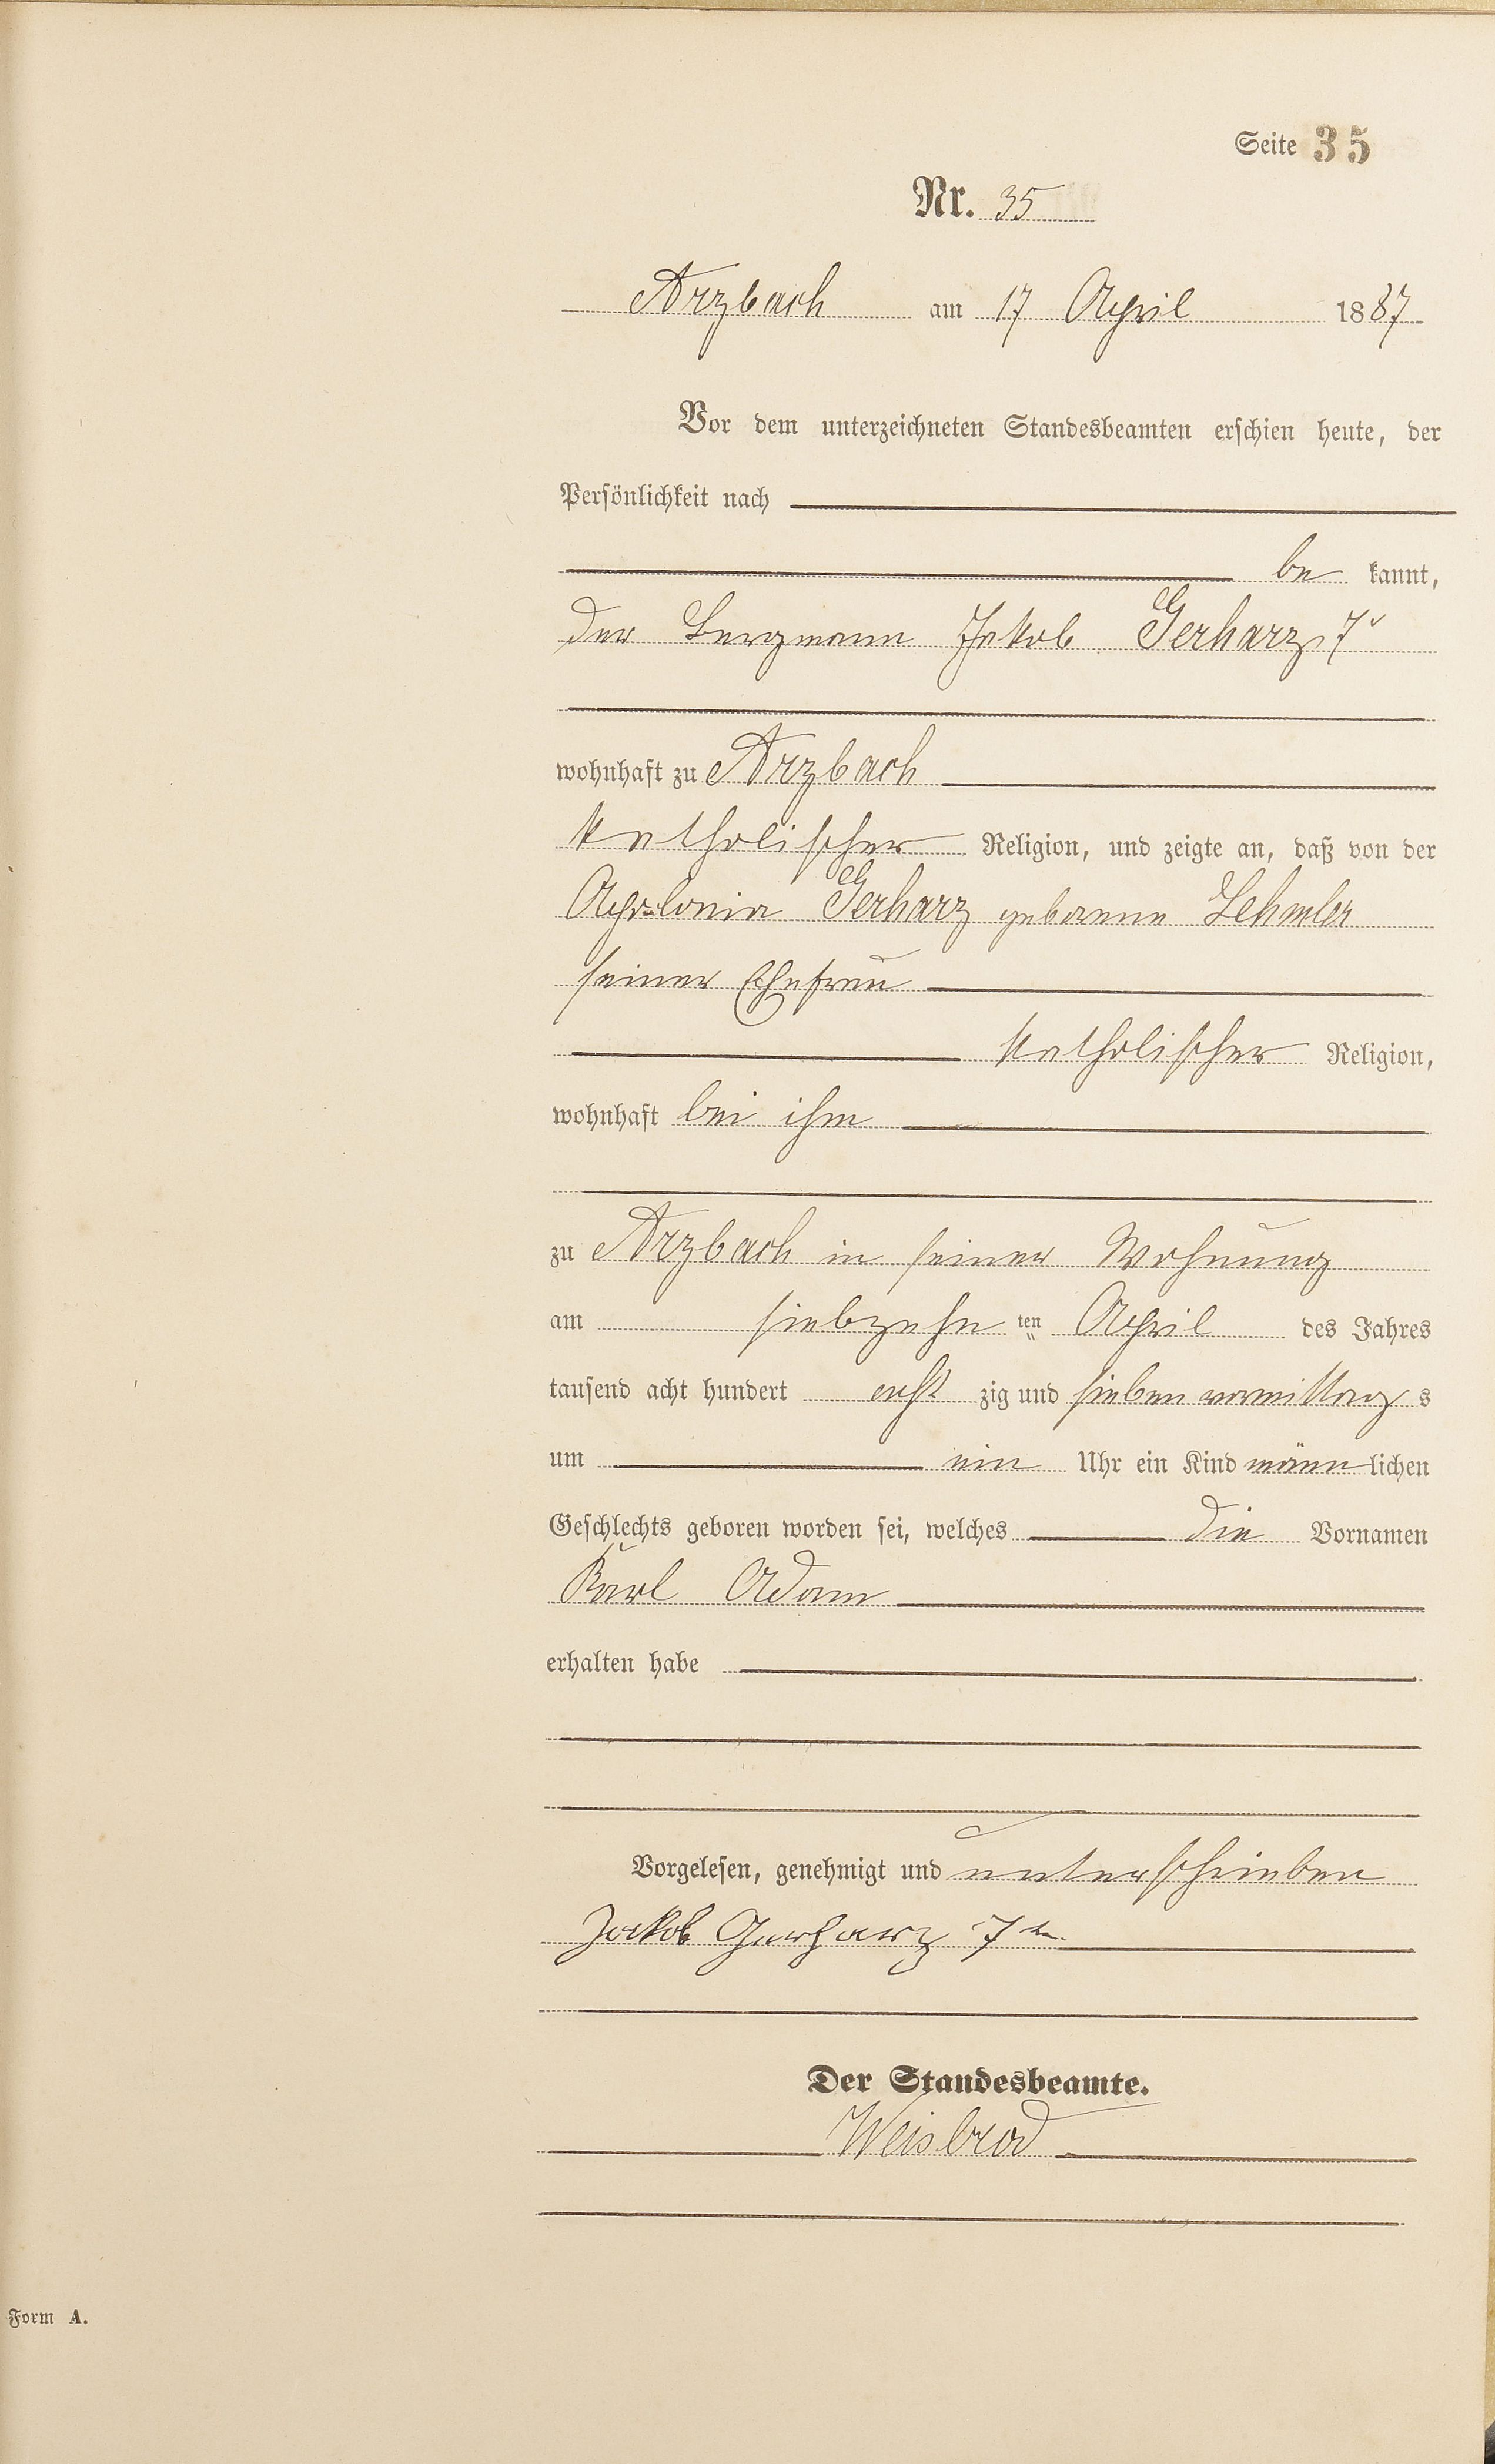 Seite 35
Nr. 35
Arzbach am 17 April 1887
Vor dem unterzeichneten Standesbeamten erschien heute, der
Persönlichkeit nach
be kannt,
der Bergmann Jakob Gerharz 7r
wohnhaft zu Arzbach
katholischer Religion, und zeigte an, daß von der
Apolonia Gerharz geborene Lehmler
seiner Ehefrau
katholischer Religion,
wohnhaft bei ihm
zu Arzbach in seiner Wohnung
am siebzehn ten April des Jahres
tausend acht hundert acht zig und sieben vormittag s
um ein Uhr ein Kind männ lichen
Geschlechts geboren worden sei, welches die Vornamen
Karl Adam
erhalten habe
Vorgelesen, genehmigt und unterschrieben
Jakob Gerharz 7te
Der Standesbeamte.
Weisbrod
Form A.